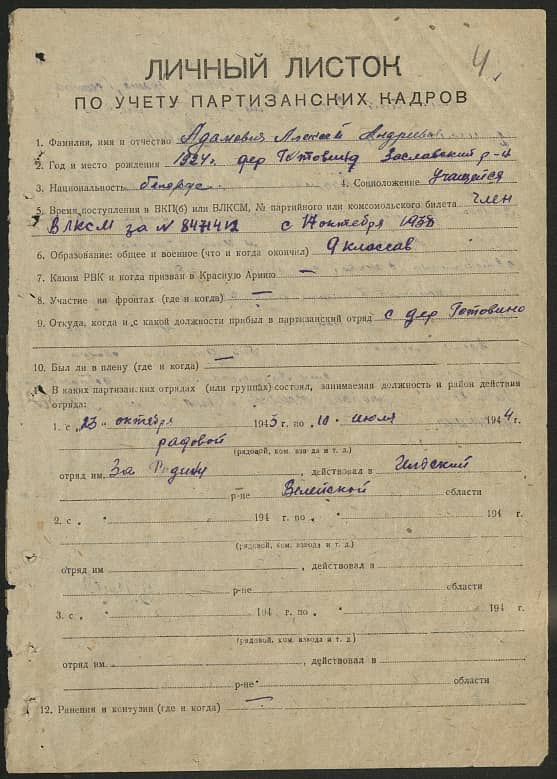 4.
ЛИЧНЫЙ ЛИСТОК
ПО УЧЕТУ ПАРТИЗАНСКИХ КАДРОВ
1. Фамилия, имя и отчество Адамович Алексей Андреевич
2. Год и место рождения 1924г. дер Готовино Заславский р-н
3. Национальность белорус 4. Соцположение учащейся
5. Время поступления в ВКП(б) или ВЛКСМ, № партийного или комсомольского билета член
ВЛКСМ за № 8471412 с 17 октября 1938
6. Образование: общее и военное (что и когда окончил) 9 классав
7. Каким РВК и когда призван в Красную Армию —
8. Участие на фронтах (где и когда) —
9. Откуда, когда и с какой должности прибыл в партизанский отряд с дер Готовино
10. Был ли в плену (где и когда) —
11. В каких партизанских отрядах (или группах) состоял, занимаемая должность и район действия
отряда:
1. с „23" октября 1943 г. по „10" июля 1944 г.
радовой
(рядовой, ком. взвода и т. д.)
отряд им. За Родину, действовал в Илбский
р-не Велейской области
2. с „ " 194 г. по „ " 194 г.
(рядовой, ком. взвода и т. д.)
отряд им. , действовал в
р-не области
3. с „ " 194 г. по „ " 194 г.
(рядовой, ком. взвода и т. д.)
отряд им. , действовал в
р-не области
12. Ранения и контузии (где и когда) —